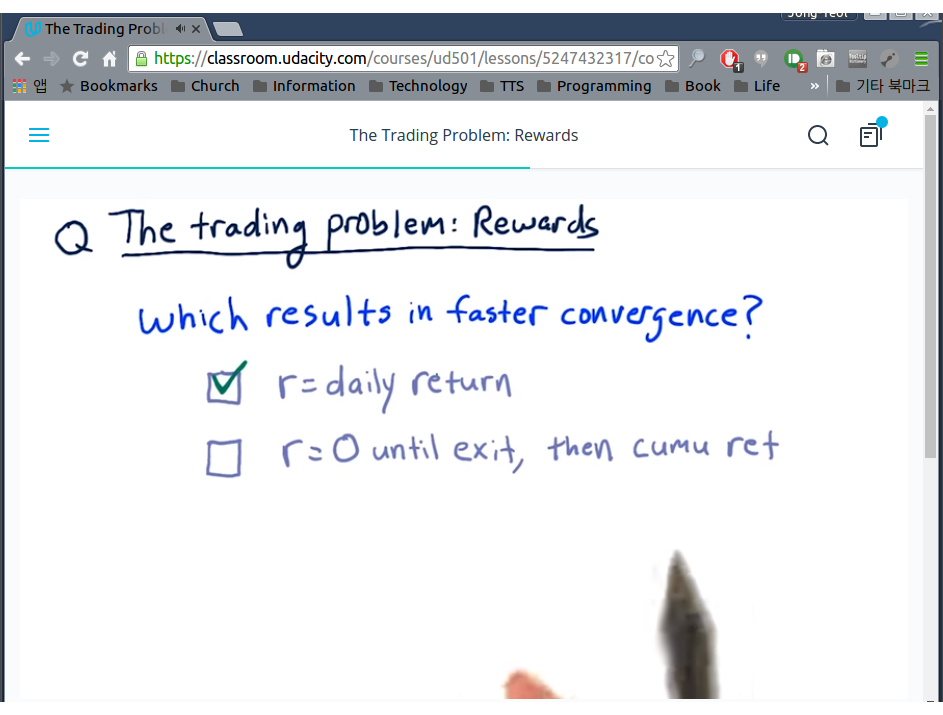 Jong Yeol
The Trading Probl
https://classroom.udacity.com/courses/ud501/lessons/5247432317/co
1
2
앱 Bookmarks Church Information Technology TTS Programming Book Life » 기타 북마크
The Trading Problem: Rewards
Q The trading problem: Rewards
Which results in faster convergence?
r = daily return
r = 0 until exit, then cumu ret